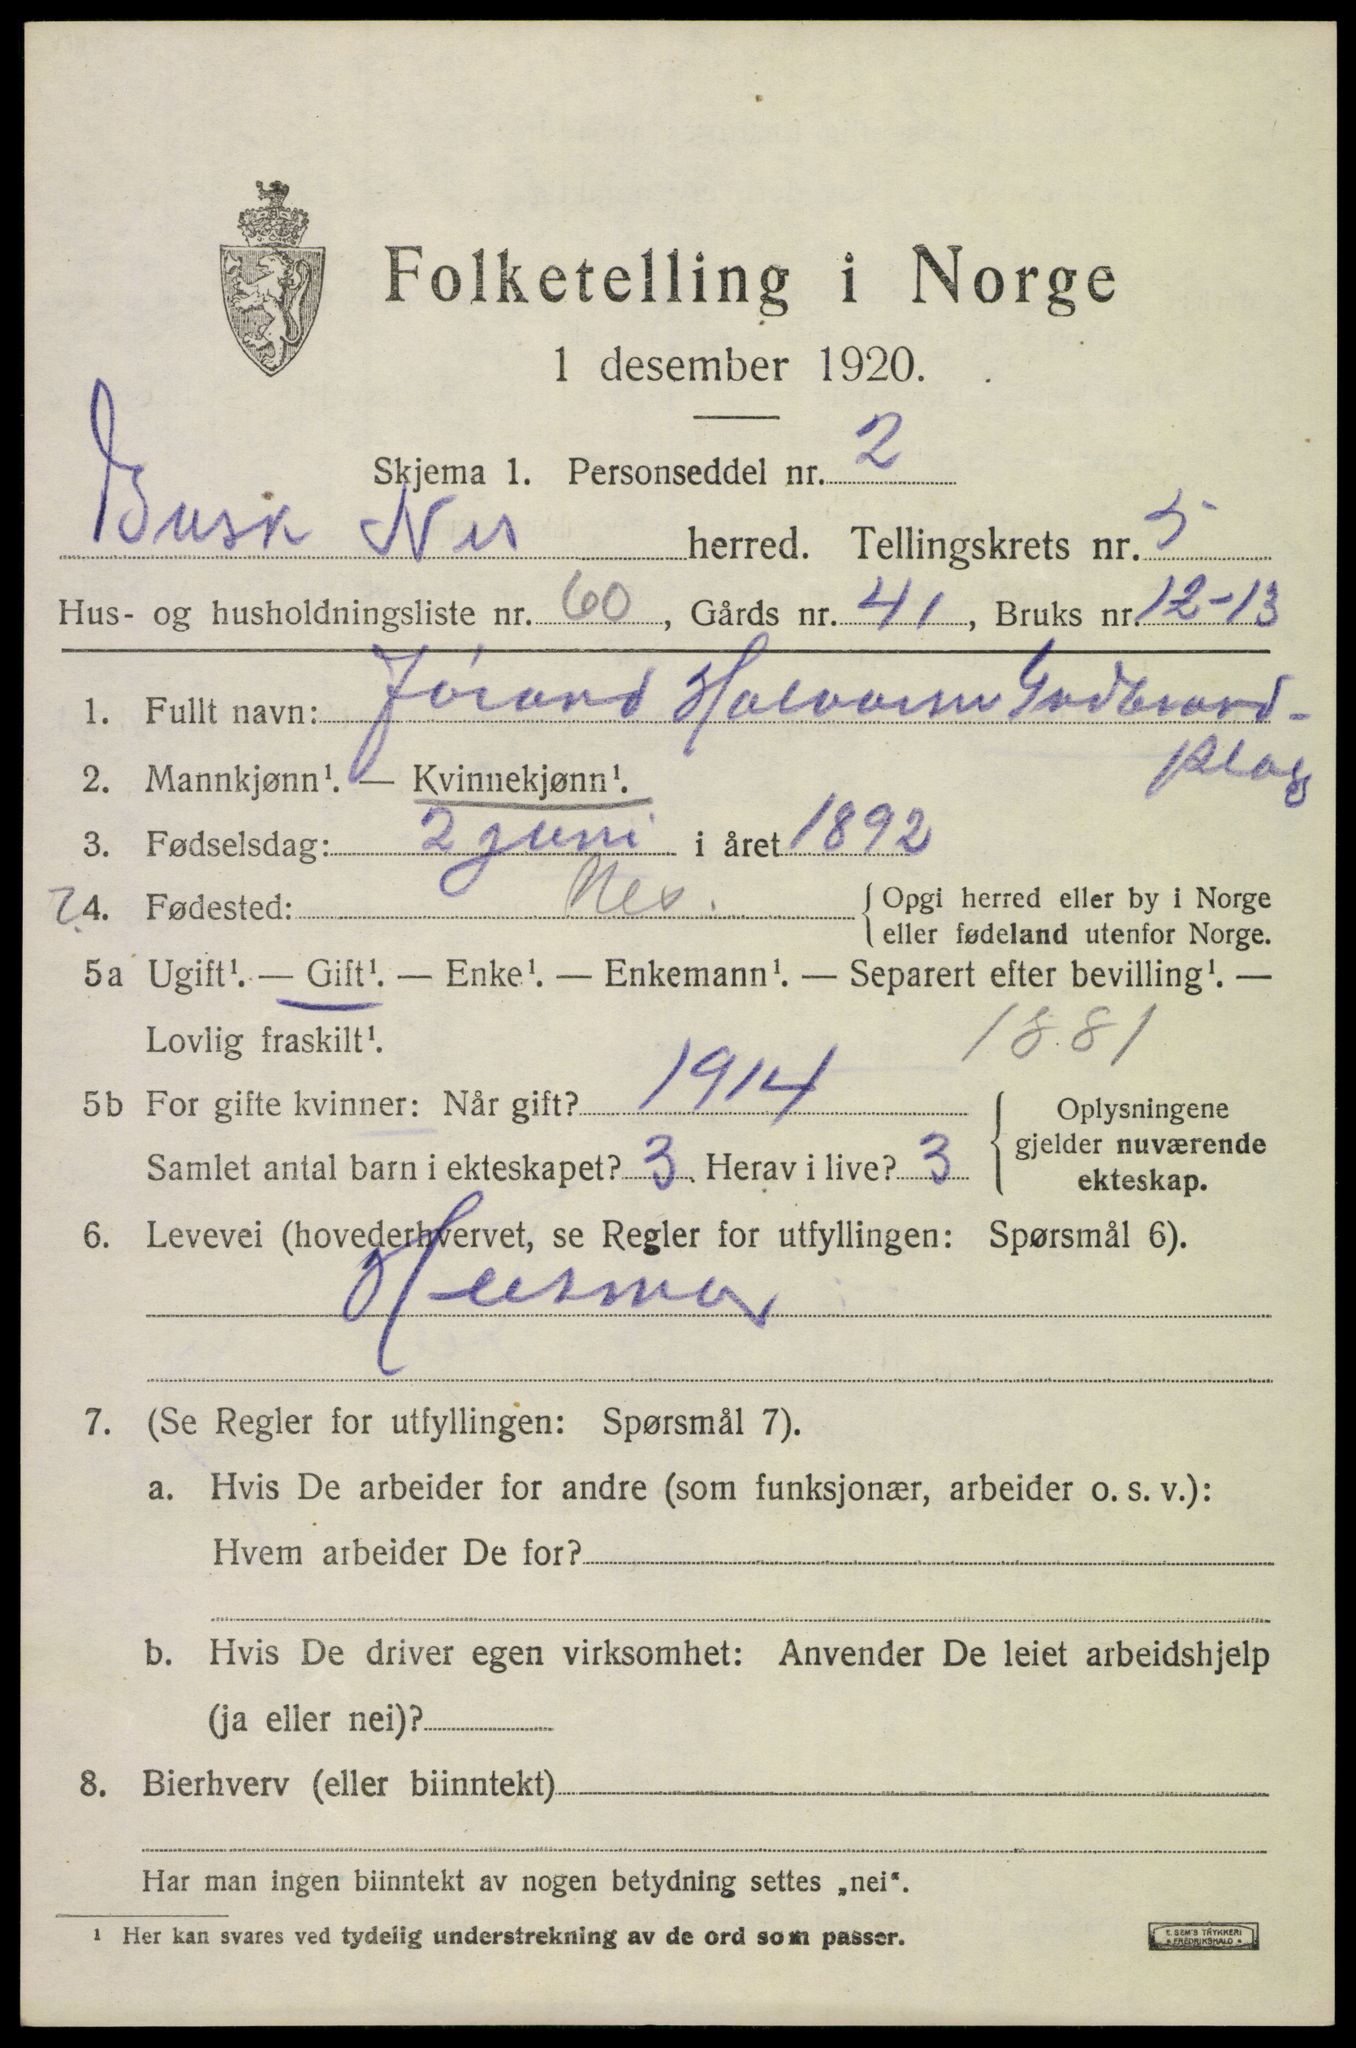 Folketelling i Norge
1 desember 1920.
Skjema 1. Personseddel nr. 2
Busk Nes herred. Tellingskrets nr. 5
Hus- og husholdningsliste nr. 60, Gårds nr. 41, Bruks nr. 12-13
1. Fullt navn: Jórand Halvorsen Gudbrand-
plas
2. Mannkjønn¹. — Kvinnekjønn¹.
3. Fødselsdag: 2 juni i året 1892
? 4. Fødested: Nes. { Opgi herred eller by i Norge
eller fødeland utenfor Norge.
5a Ugift¹. — Gift¹. — Enke¹. — Enkemann¹. — Separert efter bevilling¹. —
Lovlig fraskilt¹. 1881
5b For gifte kvinner: Når gift? 1914
Samlet antal barn i ekteskapet? 3. Herav i live? 3
{ Oplysningene
gjelder nuværende
ekteskap.
6. Levevei (hovederhvervet, se Regler for utfyllingen: Spørsmål 6).
Husmor
7. (Se Regler for utfyllingen: Spørsmål 7).
a. Hvis De arbeider for andre (som funksjonær, arbeider o. s. v.):
Hvem arbeider De for?
b. Hvis De driver egen virksomhet: Anvender De leiet arbeidshjelp
(ja eller nei)?
8. Bierhverv (eller biinntekt)
Har man ingen biinntekt av nogen betydning settes „nei“.
¹ Her kan svares ved tydelig understrekning av de ord som passer.
E. SEM'S TRYKKERI
FREDRIKSHALD